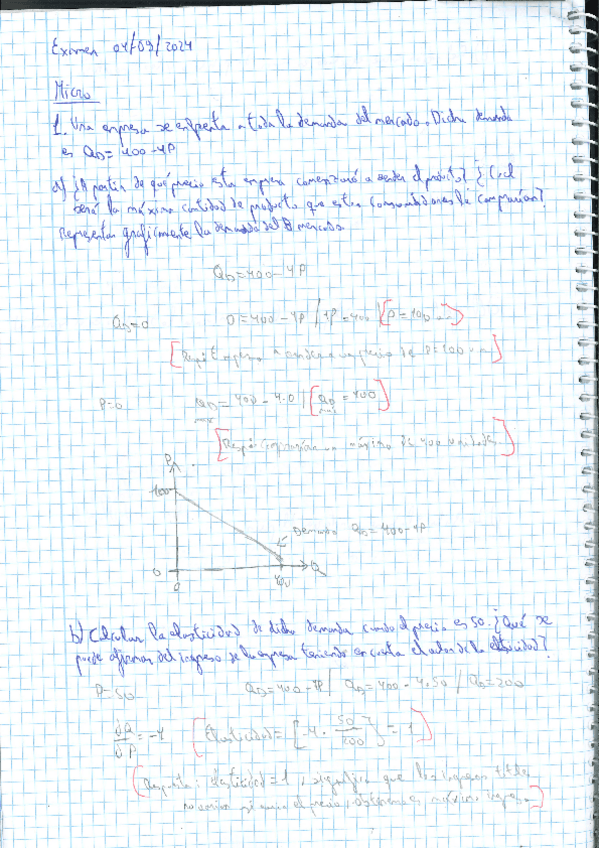 Examen 04/09/2024
Micro
1. Una empresa se enfrenta a toda la demanda del mercado. Dicha demanda
es QD = 400 - 4P
a) ¿A partir de qué precio esta empresa comenzará a vender el producto? ¿Cuál
será la máxima cantidad de producto que estos consumidores le comprarían?
Representar gráficamente la demanda del mercado.
QD = 400 - 4P
QD = 0 0 = 400 - 4P / 4P = 400 / P = 100
Resp: Empieza a vender a un precio de P = 100
P = 0 QD = 400 - 4.0 / QD = 400
Resp: Comprarían un máximo de 400 unidades
P
100
Demanda QD = 400 - 4P
0
0 400 Q
b) Calcular la elasticidad de dicha demanda cuando el precio es 50. ¿Qué se
puede afirmar del ingreso de la empresa teniendo en cuenta el valor de la elasticidad?
P = 50 QD = 400 - 4P / QD = 400 - 4.50 / QD = 200
∂Q/∂P = -4 Elasticidad = [-4 . 50/200] = 1
Respuesta: elasticidad = 1, significa que los ingresos totales
no varían si varía el precio, máximo